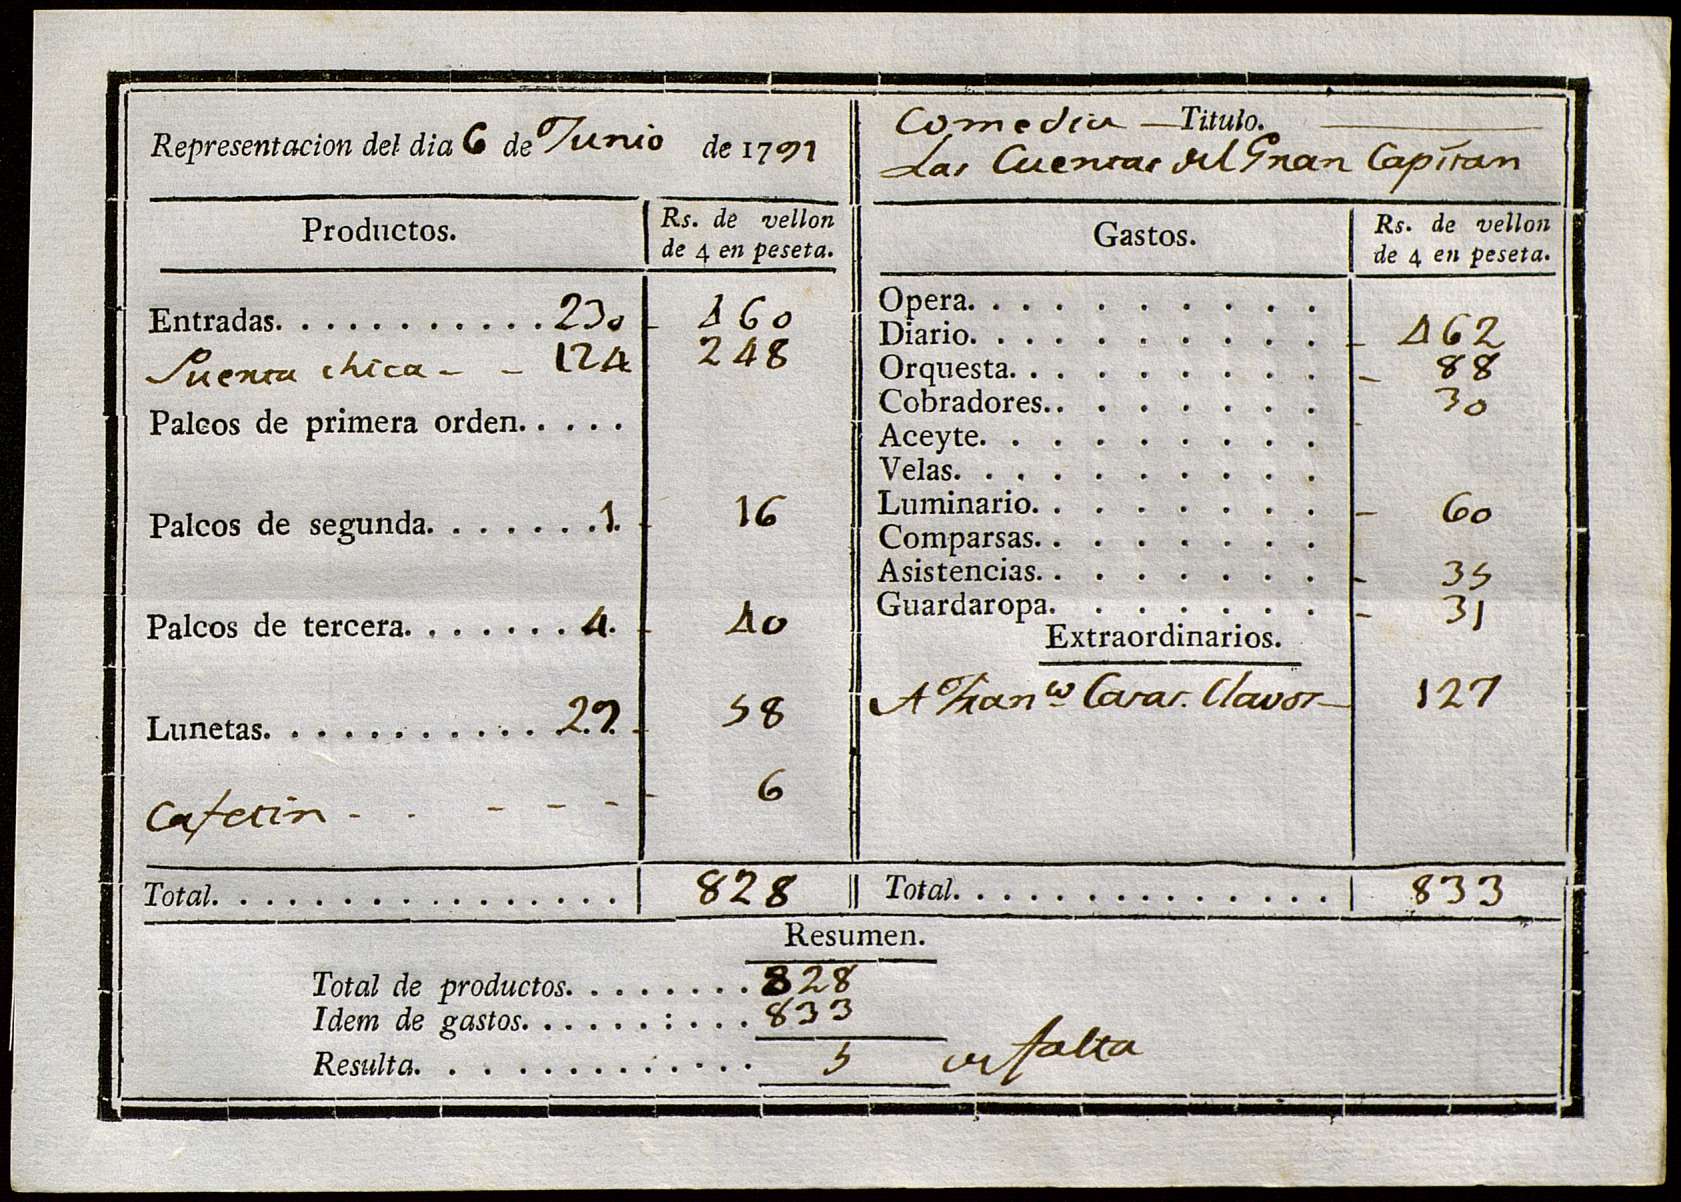 Representacion del dia 6 de Junio de 1791
Productos.
Rs. de vellon
de 4 en peseta.
Entradas. . . . . . . . . . . 230 - 460
Puerta chica - - 124 248
Palcos de primera orden. . . . .
Palcos de segunda. . . . . . . 1. - 16
Palcos de tercera. . . . . . . . 4. - 40
Lunetas. . . . . . . . . . . . 29. - 58
Cafetin - - - - - - 6
Total. . . . . . . . . . . . . . . . 828
Comedia — Titulo. —
Las Cuentas del Gran Capitan
Gastos.
Rs. de vellon
de 4 en peseta.
Opera. . . . . . . . . .
Diario. . . . . . . . . . - 462
Orquesta. . . . . . . . . - 88
Cobradores. . . . . . . . 30
Aceyte. . . . . . . . . .
Velas. . . . . . . . . .
Luminario. . . . . . . . - 60
Comparsas. . . . . . . .
Asistencias. . . . . . . . - 35
Guardaropa. . . . . . . - 31
Extraordinarios.
A Franco Casas. Clavos — 127
Total. . . . . . . . . . . . . . 833
Resumen.
Total de productos. . . . . . . . 828
Idem de gastos. . . . . . : . . . 833
Resulta. . . . . . . . . . . . . 5 de falta